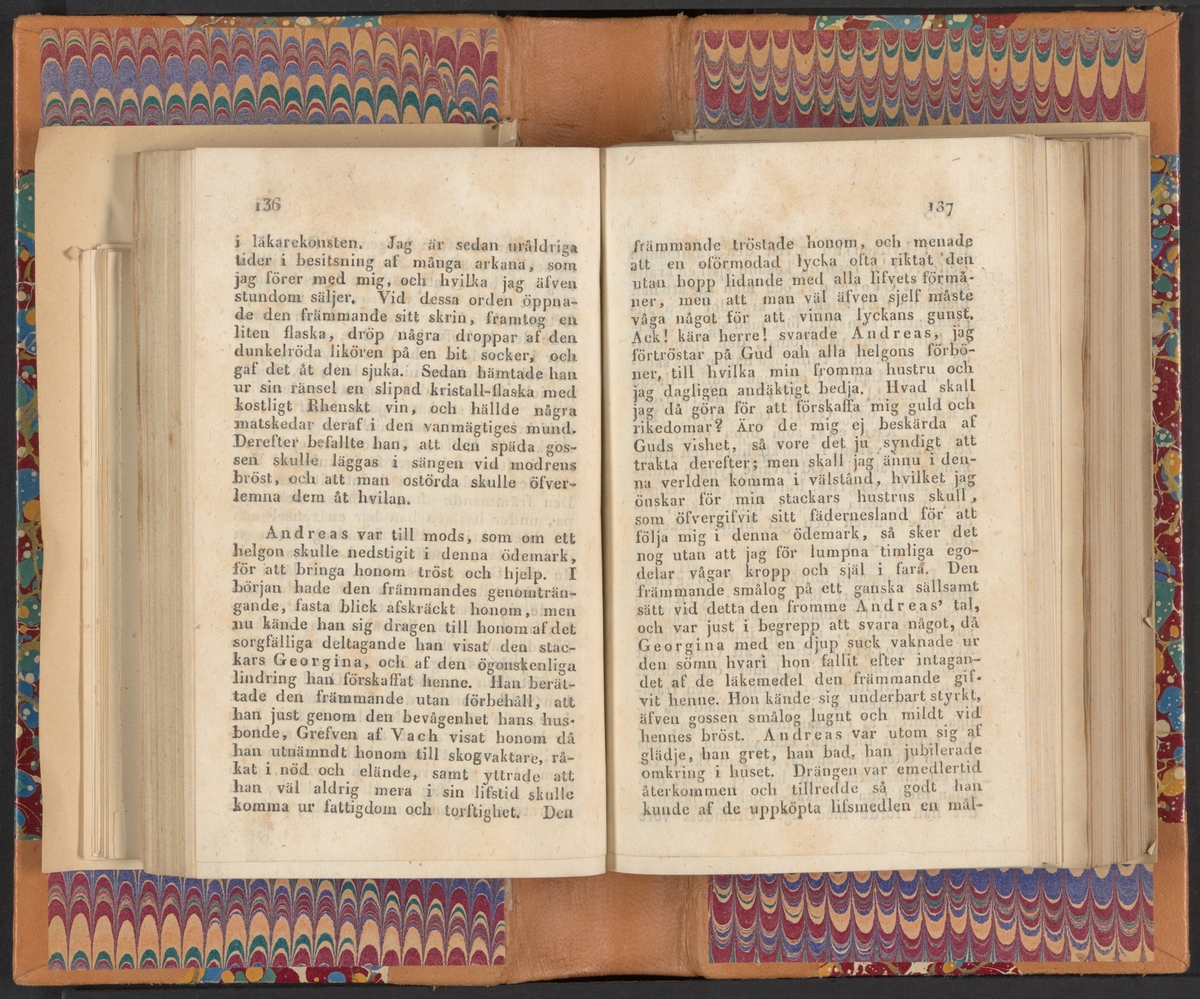 136
i läkarekonsten. Jag är sedan uråldriga
tider i besittning af många arkana, som
jag förer med mig, och hvilka jag äfven
stundom säljer. Vid dessa orden öppna-
de den främmande sitt skrin, framtog en
liten flaska, dröp några droppar af den
dunkelröda likören på en bit socker, och
gaf det åt den sjuka. Sedan hämtade han
ur sin ränsel en slipad kristall-flaska med
kostligt Rhenskt vin, och hällde några
matskedar deraf i den vanmägtiges mund.
Derefter befallte han, att den späda gos-
sen skulle läggas i sängen vid modrens
bröst, och att man ostörda skulle öfver-
lemna dem åt hvilan.
Andreas var till mods, som om ett
helgon skulle nedstigit i denna ödemark,
för att bringa honom tröst och hjelp. I
början hade den främmandes genomträn-
gande, fasta blick afskräckt honom, men
nu kände han sig dragen till honom af det
sorgfälliga deltagande han visat den stac-
kars Georgina, och af den ögonskenliga
lindring han förskaffat henne. Han berät-
tade den främmande utan förbehåll, att
han just genom den bevågenhet hans hus-
bonde, Grefven af Vach visat honom då
han utnämndt honom till skogvaktare, rå-
kat i nöd och elände, samt yttrade att
han väl aldrig mera i sin lifstid skulle
komma ur fattigdom och torftighet. Den
137
främmande tröstade honom, och menade
att en oförmodad lycka ofta riktat den
utan hopp lidande med alla lifvets förmå-
ner, men att man väl äfven sjelf måste
våga något för att vinna lyckans gunst.
Ack! kära herre! svarade Andreas, jag
förtröstar på Gud oah alla helgons förbö-
ner, till hvilka min fromma hustru och
jag dagligen andäktigt bedja. Hvad skall
jag då göra för att förskaffa mig guld och
rikedomar? Äro de mig ej beskärda af
Guds vishet, så vore det ju syndigt att
trakta derefter; men skall jag ännu i den-
na verlden komma i välstånd, hvilket jag
önskar för min stackars hustrus skull,
som öfvergifvit sitt fädernesland för att
följa mig i denna ödemark, så sker det
nog utan att jag för lumpna timliga ego-
delar vågar kropp och själ i fara. Den
främmande smålog på ett ganska sällsamt
sätt vid detta den fromme Andreas' tal,
och var just i begrepp att svara något, då
Georgina med en djup suck vaknade ur
den sömn hvari hon fallit efter intagan-
det af de läkemedel den främmande gif-
vit henne. Hon kände sig underbart styrkt,
äfven gossen smålog lugnt och mildt vid
hennes bröst. Andreas var utom sig af
glädje, han gret, han bad, han jubilerade
omkring i huset. Drängen var emedlertid
återkommen och tillredde så godt han
kunde af de uppköpta lifsmedlen en mål-